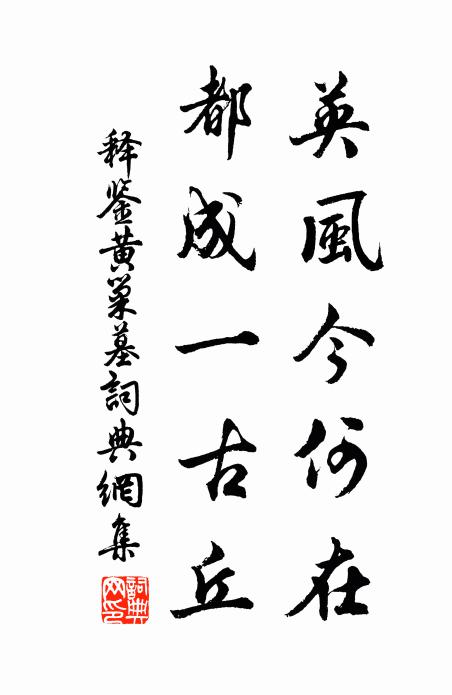 英風今何在
都成一古丘
释鉴黄巢墓詞典網集
詞典网印